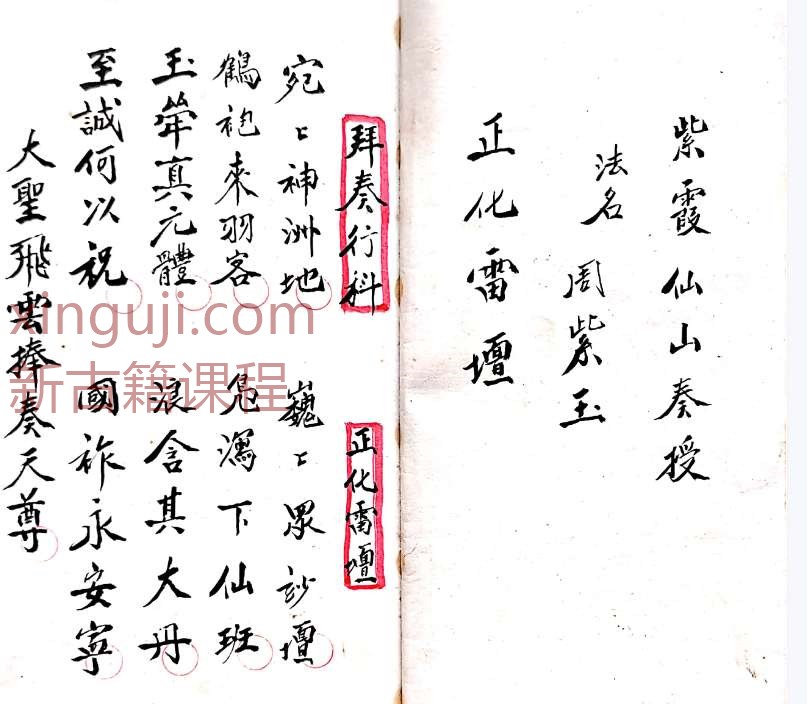 紫霞仙山奏授
法名 周紫玉
正化雷壇
拜奏行科 正化雷壇
宛〻神洲地 巍〻眾玅壇
鶴袍來羽客 鳧瀉下仙班
玉 真元體 浪含其大丹
至誠何以祝 國祚永安寧
大聖飛雲捧奏天尊
xinguji.com
新古籍课程